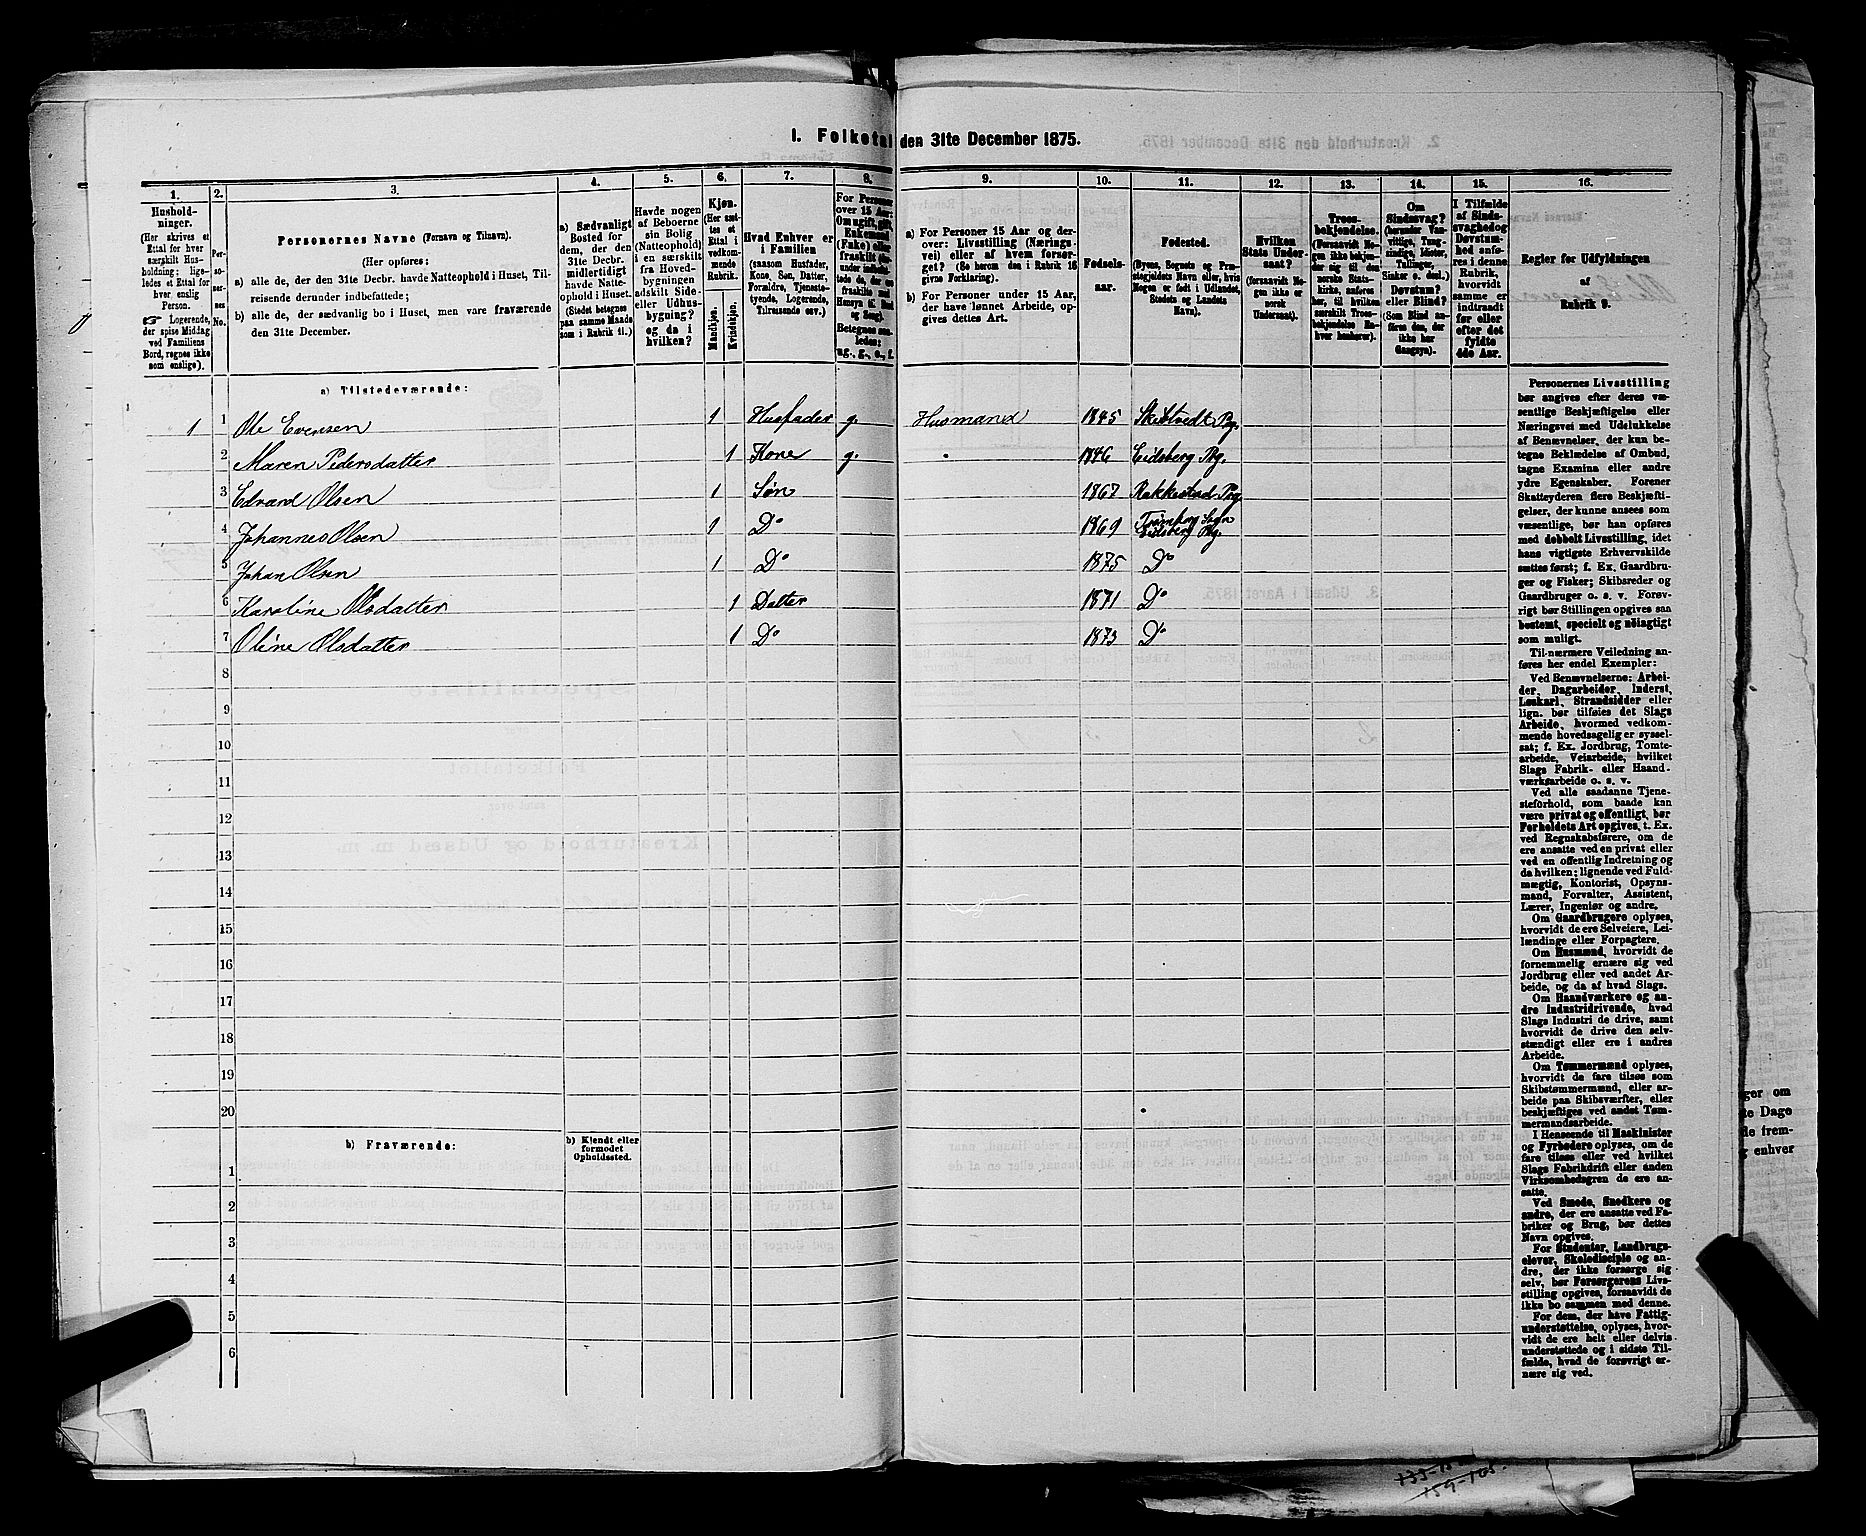 I. Folketal den 31te December 1875.
1. 2. 3. 4. 5. 6. 7. 8. 9. 10. 11. 12. 13. 14. 15. 16.
Hushold-
ninger.
(Her skrives et
Ettal for hver
særskilt Hus-
holdning; lige-
ledes et Ettal for
hver enslig
Person.
☞ Logerende,
der spise Middag
ved Familiens
Bord, regnes ikke
som enslige).
Per-
so-
ner-
nes
No.
Personernes Navne (Fornavn og Tilnavn).
(Her opføres:
a) alle de, der den 31te Decbr. havde Natteophold i Huset, Til-
reisende derunder indbefattede;
b) alle de, der sædvanlig bo i Huset, men vare fraværende
den 31te December.
a) Sædvanligt
Bosted for
dem, der den
31te Decbr.
midlertidigt
havde Natte-
ophold i Huset.
(Stedet betegnes
paa samme Maade
som i Rubrik 11.)
Havde nogen
af Beboerne
sin Bolig
(Natteophold)
i en særskilt
fra Hoved-
bygningen
adskilt Side-
eller Udhus-
bygning?
og da i
hvilken?
Kjøn.
(Her sæt-
tes et
Ettal i
vedkom-
mende
Rubrik.
Mandkjøn.
Kvindekjøn.
Hvad Enhver er
i Familien
(saasom Husfader,
Kone, Søn, Datter,
Forældre, Tjeneste-
tyende, Logerende,
Tilreisende osv.)
For Personer
over 15 Aar:
Om ugift, gift,
Enkemand
(Enke) eller
fraskilt
Betegnes saa-
ledes:
ug., g., e., f.
a) For Personer 15 Aar og der-
over: Livsstilling (Nærings-
vei) eller af hvem forsør-
get? (Se herom den i Rubrik 16
givne Forklaring).
b) For Personer under 15 Aar,
der have lønnet Arbeide, op-
gives dettes Art.
Fødsels-
aar.
Fødested.
(Byens, Sognets og Præ-
stegjeldets Navn eller, hvis
Nogen er født i Udlandet,
Stedets og Landets
Navn).
Hvilken
Stats Under-
saat?
(forsaavidt No-
gen ikke er
norsk
Undersaat).
Troes-
bekjendelse.
(Forsaavidt No-
gen ikke bekjen-
der sig til den
norske Stats-
kirke, anføres
her, til hvilken
særskilt Troes-
bekjendelse En-
hver henhører).
Om
Sindssvag?
(herunder Van-
vittige, Tung-
sindige, Idioter,
Tullinger,
Sinker o. desl.)
Døvstum?
eller Blind?
(Som Blind an-
føres den, der
ikke har
Gangsyn).
I Tilfælde
af Sinds-
svaghed og
Døvstum-
hed anfø-
res i denne
Rubrik,
hvorvidt
samme er
indtraadt
før eller
efter det
fyldte
4de Aar.
Regler for Udfyldningen
af
Rubrik 9.
a) Tilstedeværende:
1 1 Ole Evensen 1 Husfader g. Husmand 1845 Skibtvedt Pg.
2 Maren Pedersdatter 1 Kone g. 1846 Eidsberg Pg.
3 Edvard Olsen 1 Søn 1867 Rakkestad Pg.
4 Johannes Olsen 1 Do 1869 Trømborg Sogn
Eidsberg Pg.
5 Johan Olsen 1 Do 1875 Do
6 Karoline Olsdatter 1 Datter 1871 Do
7 Oline Olsdatter 1 Do 1873 Do
8
9
10
11
12
13
14
15
16
17
18
19
20
b) Fraværende:
b) Kjendt eller
formodet
Opholdssted.
1
2
3
4
5
6
Personernes Livsstilling
bør angives efter deres væ-
sentlige Beskjæftigelse eller
Næringsvei med Udelukkelse
af Benævnelser, der kun be-
tegne Beklædelse af Ombud,
tagne Examina eller andre
ydre Egenskaber. Forener
Skatteyderen flere Beskjæfti-
gelser, der kunne ansees som
væsentlige, bør han opføres
med dobbelt Livsstilling, idet
hans vigtigste Erhvervskilde
sættes først; f. Ex. Gaardbru-
ger og Fisker; Skibsreder og
Gaardbruger o. s. v. Forøv-
rigt bør Stillingen opgives saa
bestemt, specielt og nøiagtigt
som muligt.
Til nærmere Veiledning an-
føres her endel Exempler:
Ved Benævnelserne: Arbei-
der, Dagarbeider, Inderst,
Løskarl, Strandsidder eller
lign. bør tilføies det Slags
Arbeide, hvormed vedkom-
mende hovedsagelig er syssel-
sat; f. Ex. Jordbrug, Tomte-
arbeide, Veiarbeide, hvilket
Slags Fabrik- eller Haand-
værksarbeide o. s. v.
Ved alle saadanne Tjene-
steforhold, som baade kan
være privat og offentligt, bør
Forholdets Art opgives, t. Ex.
ved Regnskabsførere, om de
ere ansatte ved en privat eller
ved en offentlig Indretning og
da hvilken; lignende ved Fuld-
mægtig, Kontorist, Opsyns-
mand, Forvalter, Assistent,
Lærer, Ingeniør og andre.
Om Gaardbrugere oplyses,
hvorvidt de ere Selveiere, Lei-
lændinge eller Forpagtere.
Om Husmænd, hvorvidt de
fornemmelig ernære sig ved
Jordbrug eller ved andet Ar-
beide, og da af hvad Slags.
Om Haandværkere og an-
dre Industridrivende, hvad
Slags Industri de drive, samt
hvorvidt de drive den selv-
stændigt eller ere i andres
Arbeide.
Om Tømmermænd oplyses,
hvorvidt de fare tilsøs som
Skibstømmermænd, eller ar-
beide paa Skibsværfter, eller
beskjæftiges ved andet Tøm-
mermandsarbeide.
I Henseende til Maskinister
og Fyrbødere oplyses, om de
fare tilsøs eller ved hvilket
Slags Fabrikdrift eller anden
Virksomhedsgren de ere an-
satte.
Ved Smede, Snedkere og
andre, der ere ansatte ved Fa-
briker og Brug, bør dettes
Navn opgives.
For Studenter, Landbrugs-
elever, Skoledisciple og an-
dre, der ikke forsørge sig
selv, bør Forsørgerens Livs-
stilling opgives, forsaavidt de
ikke bo sammen med denne.
For dem, der have Fattig-
understøttelse, oplyses, hvor-
vidt de ere helt eller delvis
understøttede og i sidste Til-
fælde, hvad de forøvrigt er-
nære sig ved.